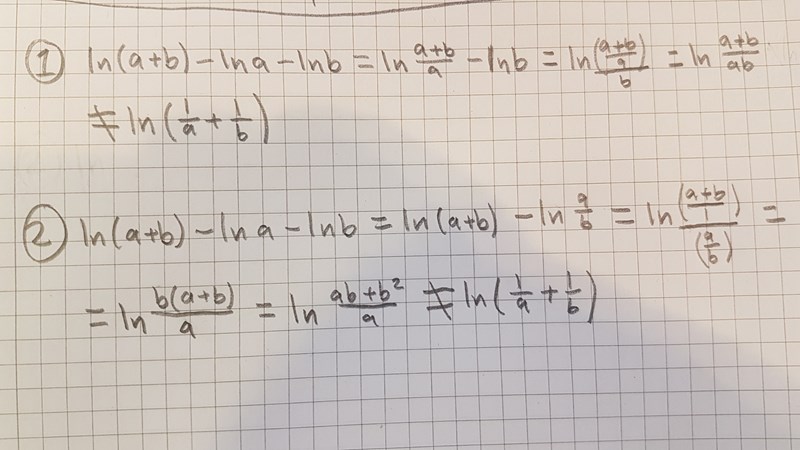 ① ln(a+b) - ln a - ln b = ln \frac{a+b}{a} - ln b = ln \frac{(\frac{a+b}{a})}{b} = ln \frac{a+b}{ab}
≠ ln(\frac{1}{a} + \frac{1}{b})
② ln(a+b) - ln a - ln b = ln(a+b) - ln \frac{a}{b} = ln \frac{(\frac{a+b}{1})}{(\frac{a}{b})} =
= ln \frac{b(a+b)}{a} = ln \frac{ab+b^2}{a} ≠ ln(\frac{1}{a} + \frac{1}{b})